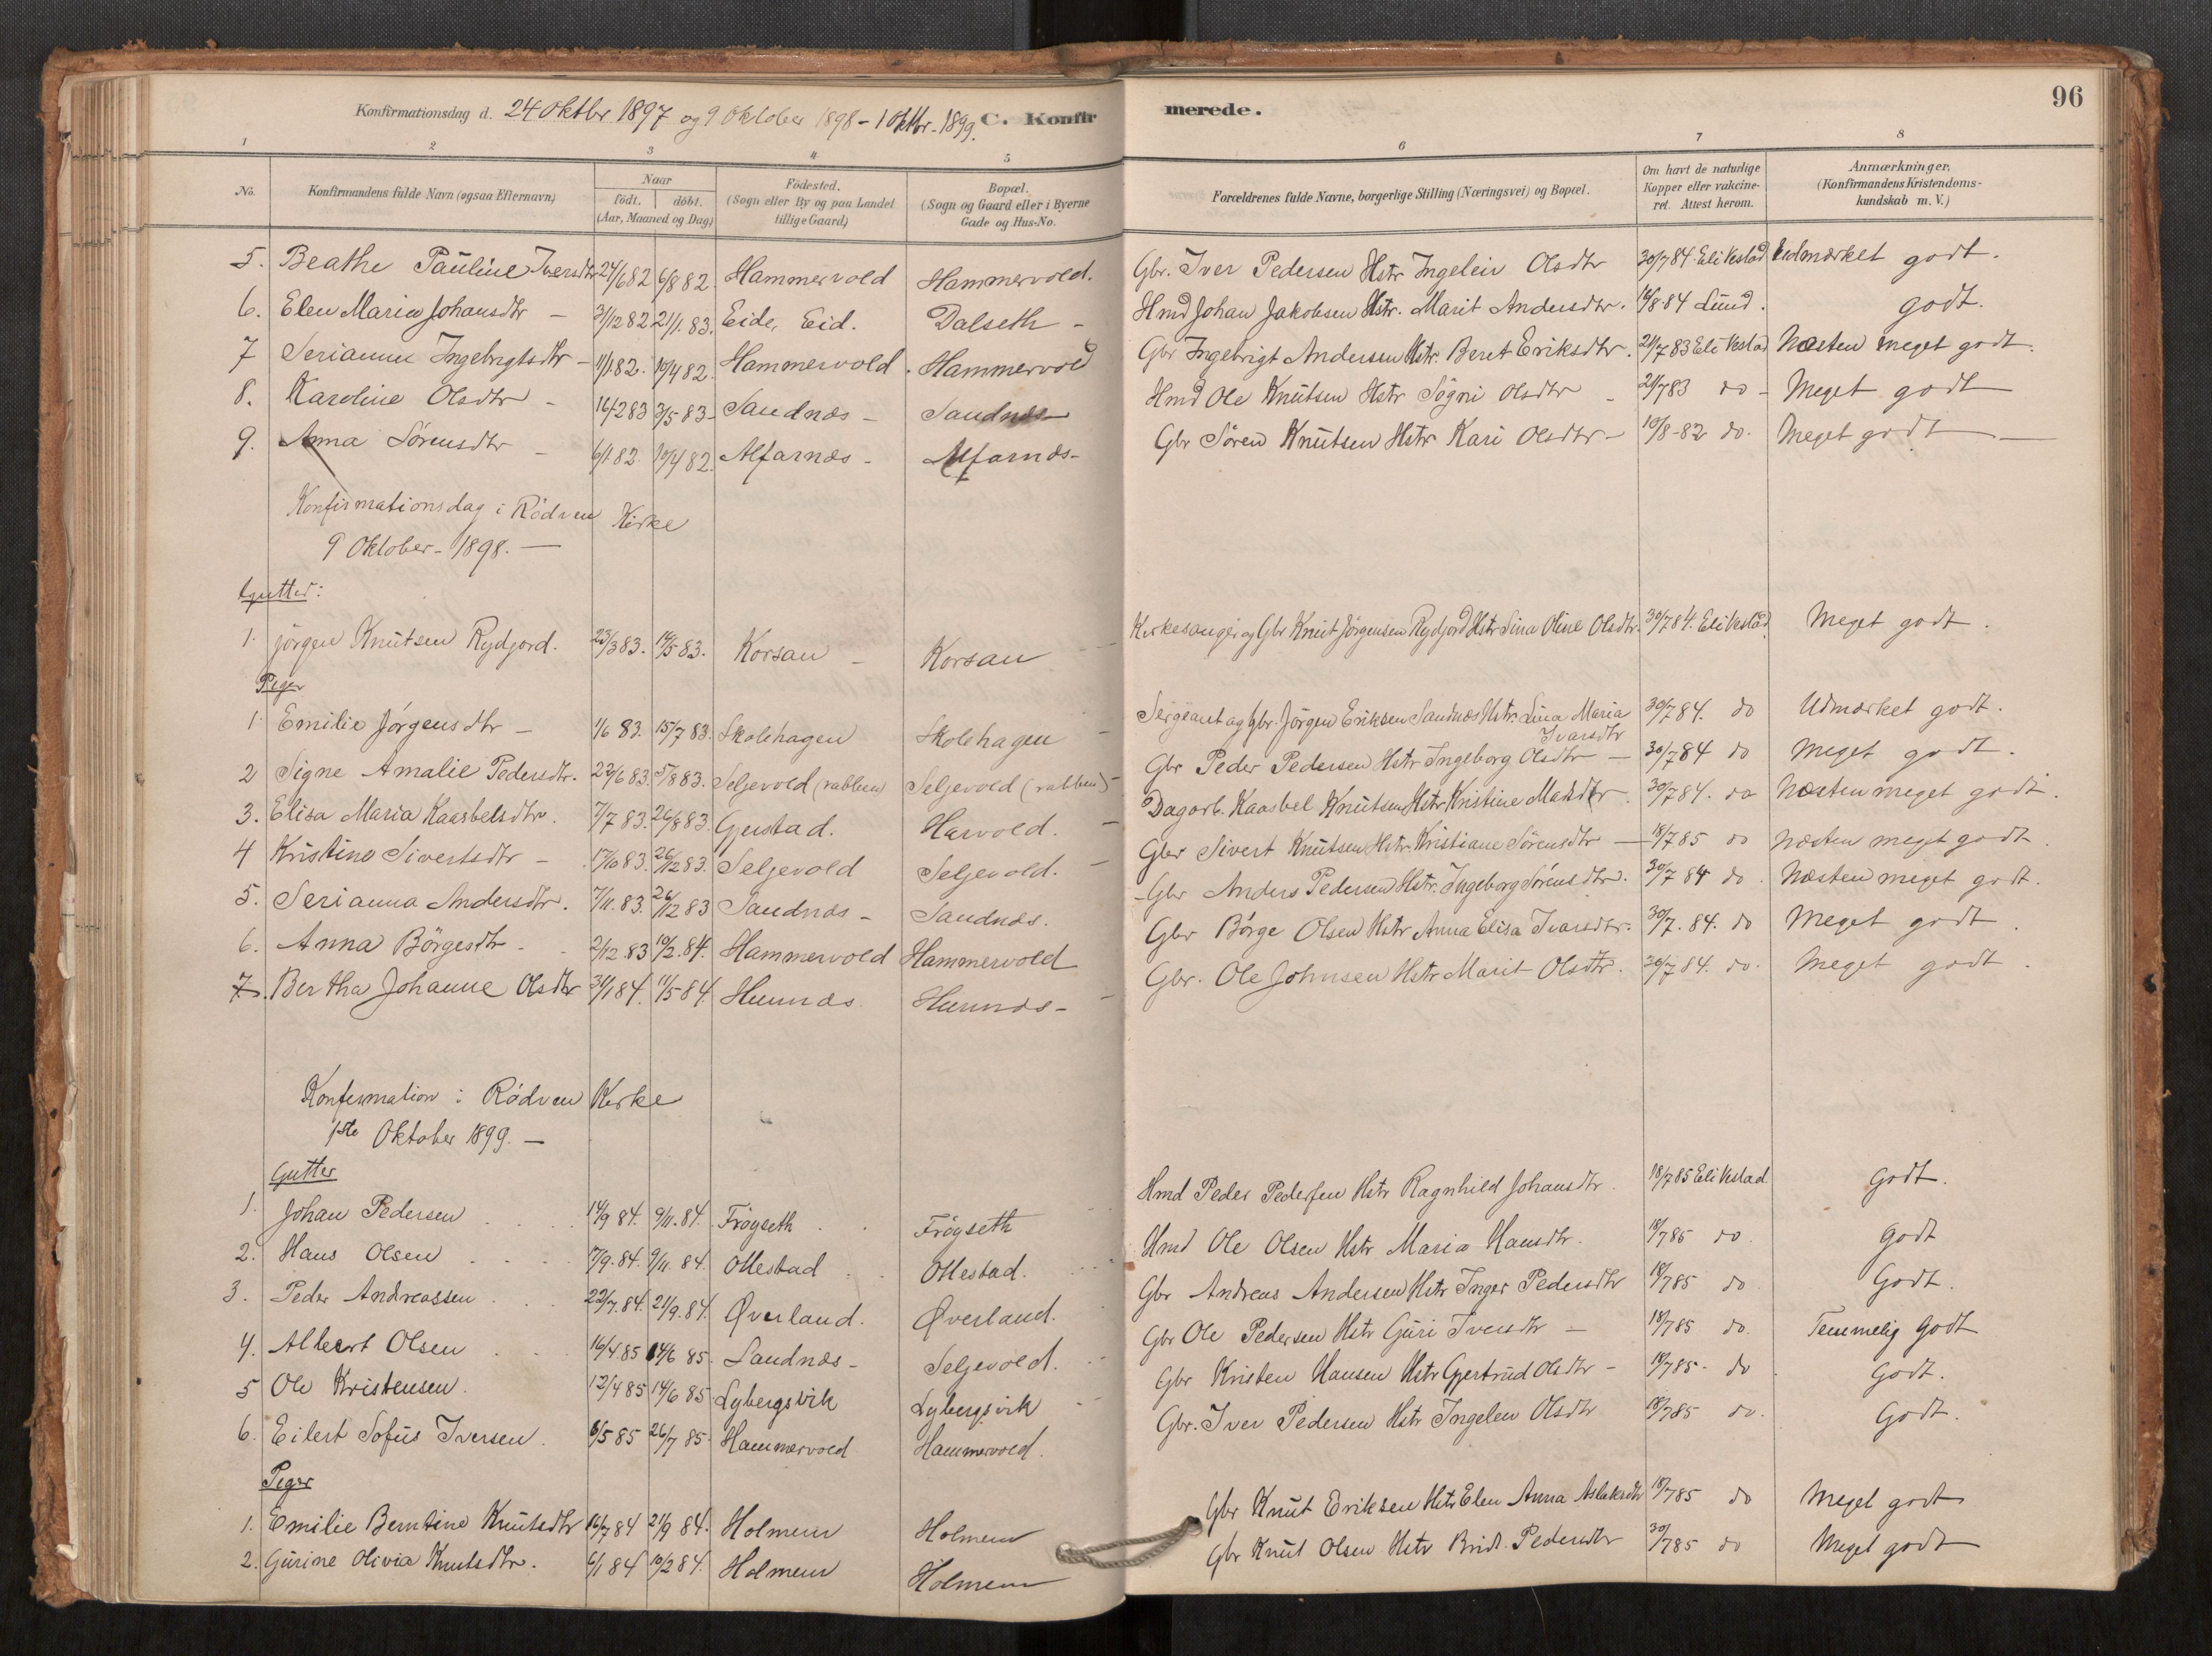 96
Konfirmationsdag d. 24 Oktbr 1897 og 9 Oktober 1898 - 1 Oktbr. 1899. C. Konfirmerede.
1 2 3 4 5 6 7 8
No. Konfirmandens fulde Navn (ogsaa Efternavn) Naar født. døbt. (Aar, Maaned og Dag) Fødested. (Sogn eller By og paa Landet tillige Gaard) Bopæl. (Sogn og Gaard eller i Byerne Gade og Hus-No. Forældrenes fulde Navne, borgerlige Stilling (Næringsvei) og Bopæl. Om havt de naturlige Kopper eller vakcineret. Attest herom. Anmærkninger. (Konfirmandens Kristendomskundskab m. V.)
5. Beathe Pauline Iversdtr 24/6 82 6/8 82. Hammervold Hammervold. Gbr. Iver Pedersen Hstr Ingeleiv Olsdtr 30/7 84. Eli Vestad Udmærket godt.
6. Elen Maria Johansdtr - 3/12 82 21/1. 83. Eide, Eid. Dalseth - Hmd Johan Jakobsen Hstr. Marit Andersdtr. 16/8 84 Lund. godt.
7 Serianna Ingebrigtsdtr - 11/1 82. 10/4 82. Hammervold. Hammervold Gbr Ingebrigt Andersen Hstr. Beret Eriksdtr. 21/7 83 Eli Vestad Næsten meget godt.
8. Karoline Olsdtr - 16/2 83 3/5 83 - Sandnæs - Sandnæs Hmd Ole Knutsen Hstr Sögni Olsdtr - 21/7 83 do - Meget godt
9. Anna Sörensdtr - 6/1 82. 10/4 82. Alfarnæs - Alfarnæs - Gbr Sören Knutsen Hstr Kari Olsdtr - 10/8 - 82 do. Meget godt -
Konfirmationsdag i Rödven Kirke
9 Oktober - 1898. -
Gutter:
1. Jörgen Knutsen Rydjord. 23/3 83. 14/5 83. Korsan - Korsan Kirkesanger og Gbr Knut Jörgensen Rydjord Hstr Lina Oline Olsdtr. 30/7 84. Eli Vestad. Meget godt.
Piger
1. Emilie Jörgensdtr - 1/6 83. 15/7 83. Skolehagen Skolehagen - Sergeant og Gbr. Jörgen Eriksen Sandnæs Hstr. Lina Maria Ivarsdtr 30/7 84. do Udmærket godt.
2 Signe Amalie Pedersdtr. 22/6 83. 5/8 83. Seljevold (rabben) Seljevold (rabben) - Gbr Peder Pedersen Hstr Ingeborg Olsdtr - 30/7 84 do Meget godt.
3. Elisa Maria Kaasbelsdtr. 7/7 83. 26/8 83. Gjerstad. Harvold. - Dagarb. Kaasbel Knutsen Hstr Kristine Madsdtr. 30/7 84. do Næsten meget godt.
4 Kristine Sivertsdtr - 17/10 83. 26/12 83. Seljevold Seljevold. - Gbr Sivert Knutsen Hstr. Kristiane Sörensdtr - 18/7 85 do Næsten meget godt.
5. Serianna Andersdtr. 7/11. 83. 26/12 83 Sandnæs - Sandnæs. Gbr Anders Pedersen Hstr. Ingeborg Sörensdtr. 30/7 84 do. Næsten meget godt.
6. Anna Börgesdtr - 2/12. 83 10/2. 84. Hammervold Hammervold Gbr Börge Olsen Hstr Anna Elisa Ivarsdtr. 30/7. 84. do Meget godt.
7. Bertha Johanne Olsdtr 30/1 84. 11/5 84. Hunnæs. Hunnæs - Gbr. Ole Johnsen Hstr Marit Olsdtr. 30/7 84. do. Meget godt.
Konfirmation i Rödven Kirke
1ste Oktober 1899. -
Gutter
1. Johan Pedersen 14/9 84. 9/11. 84. Fröyseth Fröyseth Hmd Peder Pedersen Hstr Ragnhild Johansdtr. 18/7 85 Eli Vestad. Godt.
2. Hans Olsen 17/9. 84. 9/11. 84. Ottestad Ottestad. Hmd Ole Olsen Hstr Maria Hansdtr. 18/7 85 do. Godt
3. Peder Andreassen 22/7. 84. 21/9. 84. Øverland. Øverland. Gbr Andreas Andersen Hstr Inger Pedersdtr 18/7 85 do. Godt.
4. Albert Olsen 16/4. 85 14/6 85. Sandnæs - Seljevold. Gbr Ole Pedersen Hstr Guri Iversdtr - 18/7 85 do. Temmelig godt
5 Ole Kristensen. 12/4 85 14/6 85 Lybergsvik Lybergsvik Gbr Kristen Hansen Hstr Gjertrud Olsdtr - 18/7 85. do Godt.
6. Eilert Sofus Iversen. 6/5 85 26/7 85. Hammervold Hammervold. Gbr. Iver Pedersen Hstr Ingelen Olsdtr 18/7 85 do. Godt.
Piger
1. Emilie Berntine Knutsdtr 16/7 84 21/9 84. Holmem Holmem Gbr Knut Eriksen Hstr Elen Anna Aslaksdtr 18/7 85 do Meget godt
2. Gurine Olivia Knutsdtr. 6/1 84 10/2 84. Holmem Holmem Gbr Knut Olsen Hstr Brit Pedersdtr 30/7 85 do Meget godt